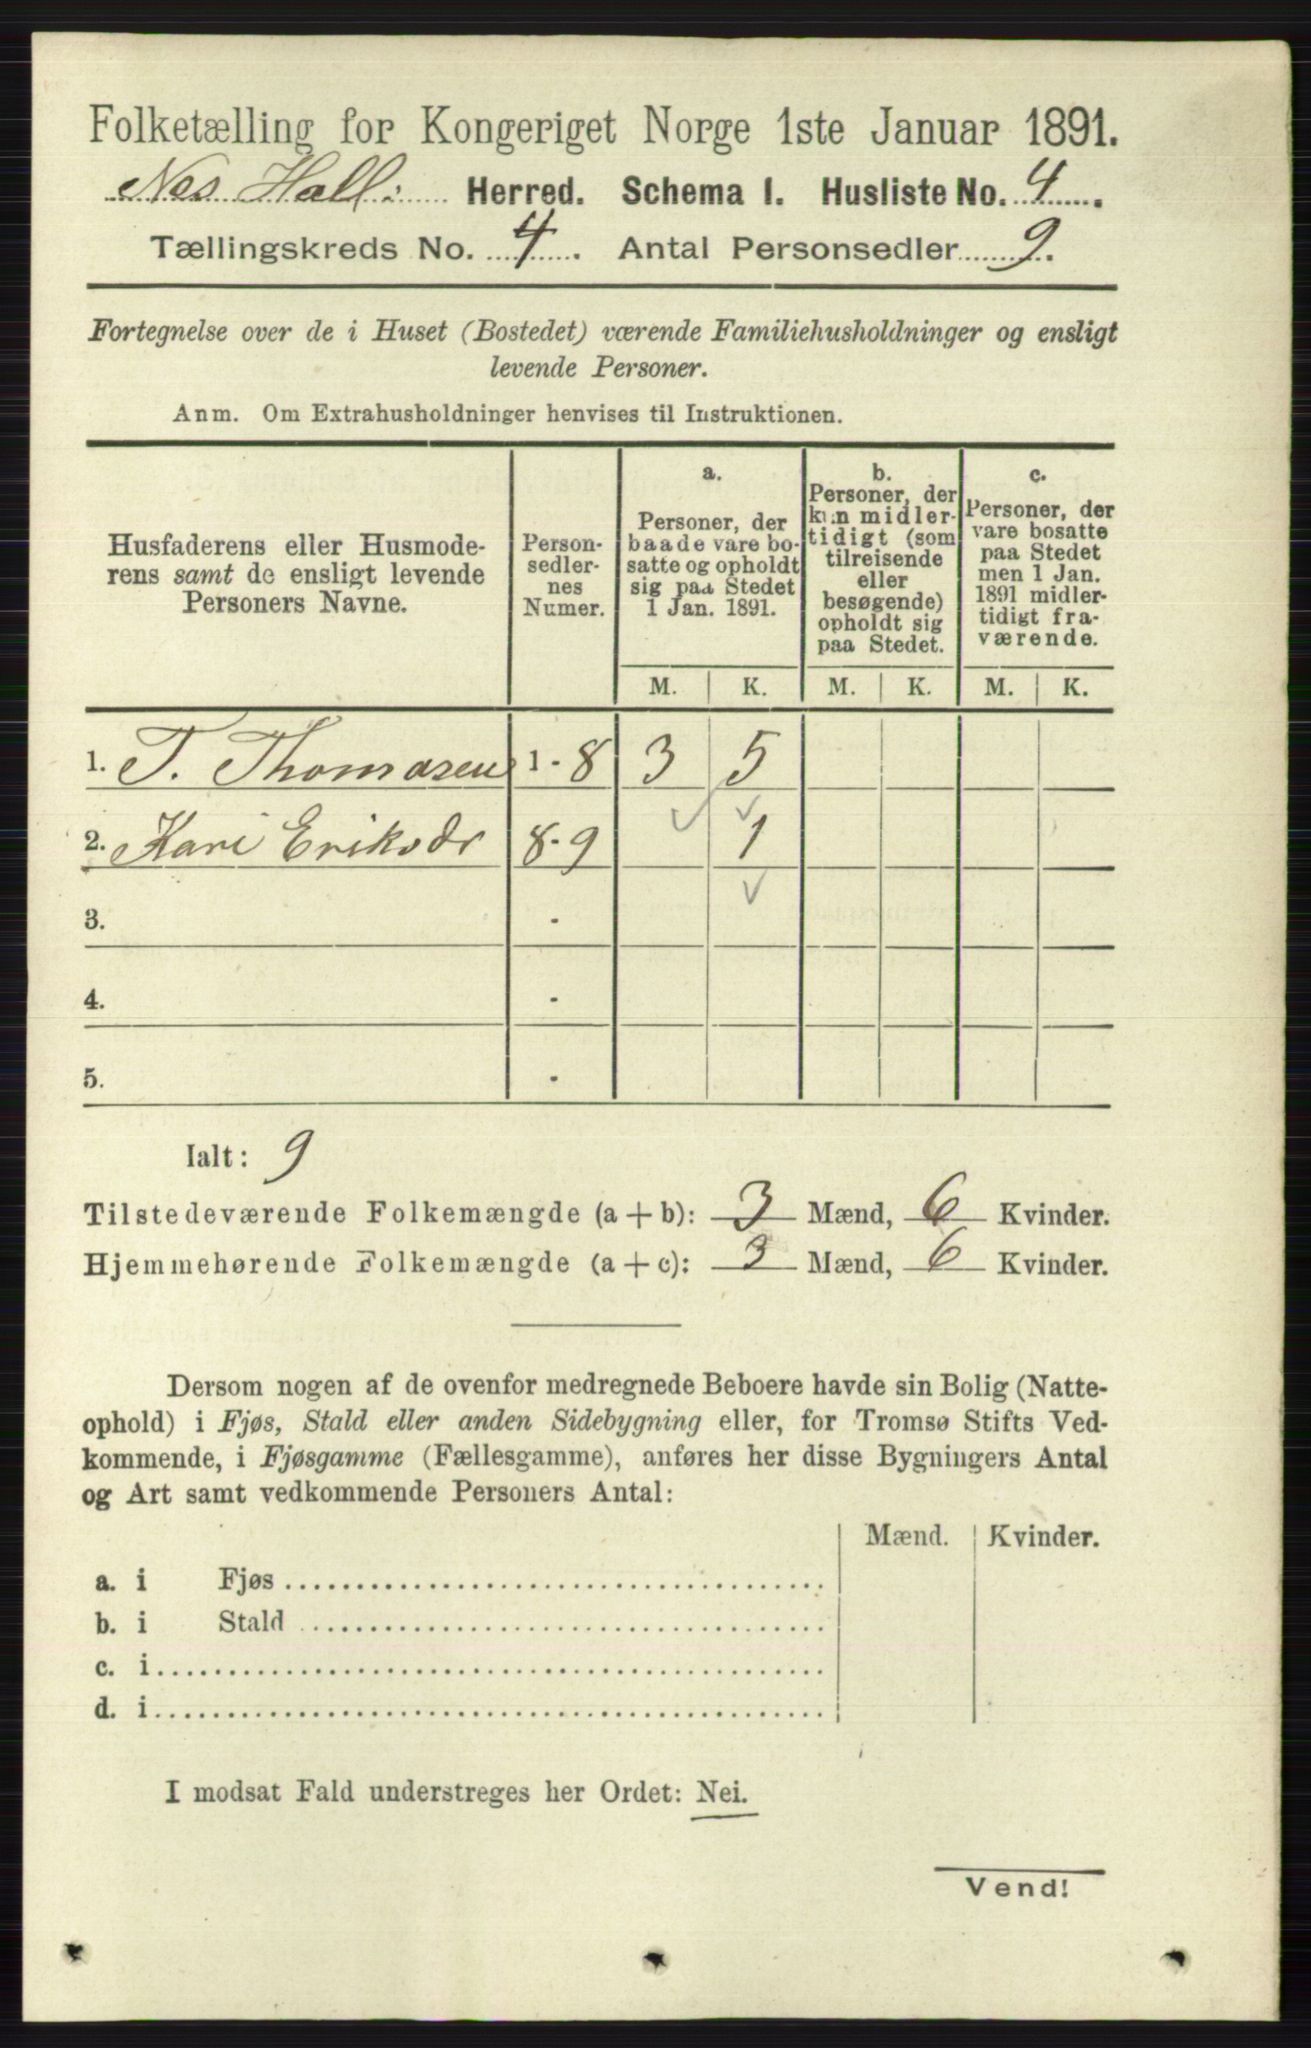 Folketælling for Kongeriget Norge 1ste Januar 1891.
Nes Hall: Herred. Schema I. Husliste No. 4.
Tællingskreds No. 4. Antal Personsedler 9.
Fortegnelse over de i Huset (Bostedet) værende Familiehusholdninger og ensligt
levende Personer.
Anm. Om Extrahusholdninger henvises til Instruktionen.
Husfaderens eller Husmode-
rens samt de ensligt levende
Personers Navne.
Person-
sedler-
nes
Numer.
a.
Personer, der
baade vare bo-
satte og opholdt
sig paa Stedet
1 Jan. 1891.
b.
Personer, der
kun midler-
tidigt (som
tilreisende
eller
besøgende)
opholdt sig
paa Stedet.
c.
Personer, der
vare bosatte
paa Stedet
men 1 Jan.
1891 midler-
tidigt fra-
værende.
M. K. M. K. M. K.
1. T. Thomasen 1-8 3 5
2. Kari Eriksdr 8-9 1
3. -
4. -
5. -
Ialt: 9
Tilstedeværende Folkemængde (a + b): 3 Mænd, 6 Kvinder.
Hjemmehørende Folkemængde (a + c): 3 Mænd, 6 Kvinder.
Dersom nogen af de ovenfor medregnede Beboere havde sin Bolig (Natte-
ophold) i Fjøs, Stald eller anden Sidebygning eller, for Tromsø Stifts Ved-
kommende, i Fjøsgamme (Fællesgamme), anføres her disse Bygningers Antal
og Art samt vedkommende Personers Antal:
Mænd. Kvinder.
a. i Fjøs
b. i Stald
c. i
d. i
I modsat Fald understreges her Ordet: Nei.
Vend!